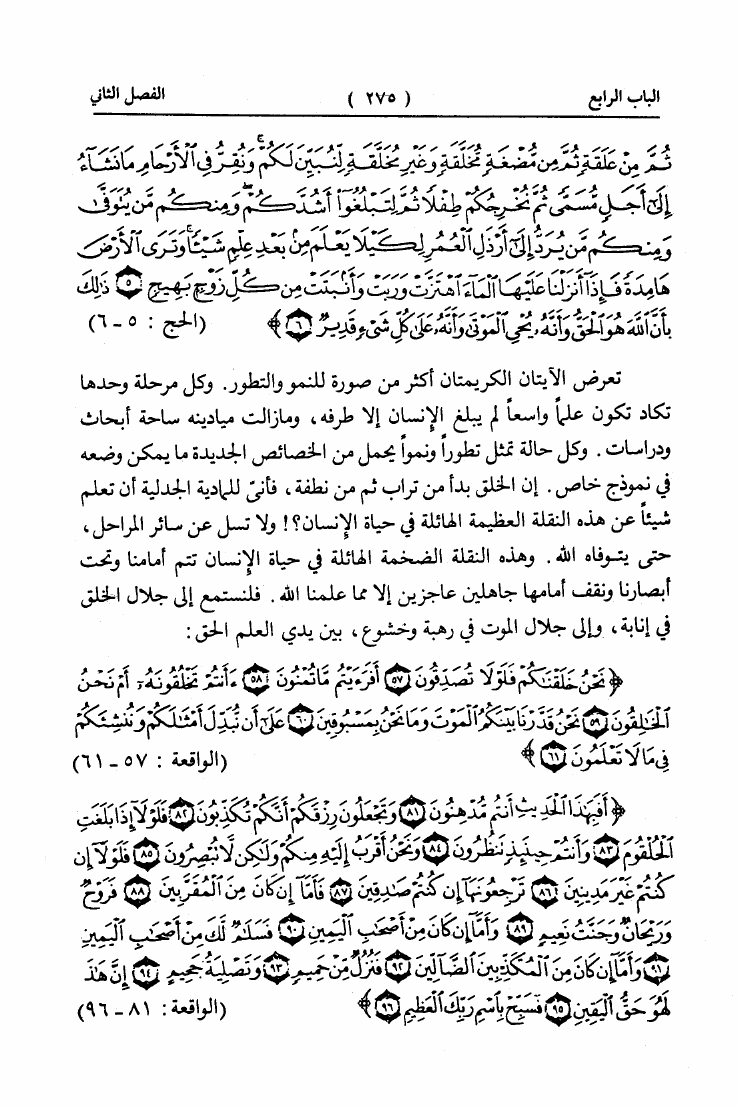 الباب الرابع ( ٢٧٥ ) الفصل الثاني
ثُمَّ مِنْ عَلَقَةٍ ثُمَّ مِن مُّضْغَةٍ مُّخَلَّقَةٍ وَغَيْرِ مُخَلَّقَةٍ لِّنُبَيِّنَ لَكُمْ ۚ وَنُقِرُّ فِي ٱلْأَرْحَامِ مَا نَشَآءُ
إِلَىٰٓ أَجَلٍ مُّسَمًّى ثُمَّ نُخْرِجُكُمْ طِفْلًا ثُمَّ لِتَبْلُغُوٓا۟ أَشُدَّكُمْ ۖ وَمِنكُم مَّن يُتَوَفَّىٰ
وَمِنكُم مَّن يُرَدُّ إِلَىٰٓ أَرْذَلِ ٱلْعُمُرِ لِكَيْلَا يَعْلَمَ مِنۢ بَعْدِ عِلْمٍ شَيْـًٔا ۚ وَتَرَى ٱلْأَرْضَ
هَامِدَةً فَإِذَآ أَنزَلْنَا عَلَيْهَا ٱلْمَآءَ ٱهْتَزَّتْ وَرَبَتْ وَأَنۢبَتَتْ مِن كُلِّ زَوْجٍۭ بَهِيجٍ ۝٥ ذَٰلِكَ
بِأَنَّ ٱللَّهَ هُوَ ٱلْحَقُّ وَأَنَّهُۥ يُحْيِ ٱلْمَوْتَىٰ وَأَنَّهُۥ عَلَىٰ كُلِّ شَىْءٍ قَدِيرٌ ۝٦ ﴾ (الحج : ٥ ـ ٦)
تعرض الآيتان الكريمتان أكثر من صورة للنمو والتطور. وكل مرحلة وحدها
تكاد تكون علماً واسعاً لم يبلغ الإنسان إلا طرفه، ومازالت ميادينه ساحة أبحاث
ودراسات. وكل حالة تمثل تطوراً ونمواً يحمل من الخصائص الجديدة ما يمكن وضعه
في نموذج خاص. إن الخلق بدأ من تراب ثم من نطفة، فأنىّ للمادية الجدلية أن تعلم
شيئاً عن هذه النقلة العظيمة الهائلة في حياة الإنسان؟! ولا تسل عن سائر المراحل،
حتى يتوفاه الله. وهذه النقلة الضخمة الهائلة في حياة الإنسان تتم أمامنا وتحت
أبصارنا ونقف أمامها جاهلين عاجزين إلا مما علمنا الله. فلنستمع إلى جلال الخلق
في إنابة، وإلى جلال الموت في رهبة وخشوع، بين يدي العلم الحق:
﴿ نَحْنُ خَلَقْنَٰكُمْ فَلَوْلَا تُصَدِّقُونَ ۝٥٧ أَفَرَءَيْتُم مَّا تُمْنُونَ ۝٥٨ ءَأَنتُمْ تَخْلُقُونَهُۥٓ أَمْ نَحْنُ
ٱلْخَٰلِقُونَ ۝٥٩ نَحْنُ قَدَّرْنَا بَيْنَكُمُ ٱلْمَوْتَ وَمَا نَحْنُ بِمَسْبُوقِينَ ۝٦٠ عَلَىٰٓ أَن نُّبَدِّلَ أَمْثَٰلَكُمْ وَنُنشِئَكُمْ
فِى مَا لَا تَعْلَمُونَ ۝٦١ ﴾ (الواقعة : ٥٧ ـ ٦١)
﴿ أَفَبِهَٰذَا ٱلْحَدِيثِ أَنتُم مُّدْهِنُونَ ۝٨١ وَتَجْعَلُونَ رِزْقَكُمْ أَنَّكُمْ تُكَذِّبُونَ ۝٨٢ فَلَوْلَآ إِذَا بَلَغَتِ
ٱلْحُلْقُومَ ۝٨٣ وَأَنتُمْ حِينَئِذٍ تَنظُرُونَ ۝٨٤ وَنَحْنُ أَقْرَبُ إِلَيْهِ مِنكُمْ وَلَٰكِن لَّا تُبْصِرُونَ ۝٨٥ فَلَوْلَآ إِن
كُنتُمْ غَيْرَ مَدِينِينَ ۝٨٦ تَرْجِعُونَهَآ إِن كُنتُمْ صَٰدِقِينَ ۝٨٧ فَأَمَّآ إِن كَانَ مِنَ ٱلْمُقَرَّبِينَ ۝٨٨ فَرَوْحٌ
وَرَيْحَانٌ وَجَنَّتُ نَعِيمٍ ۝٨٩ وَأَمَّآ إِن كَانَ مِنْ أَصْحَٰبِ ٱلْيَمِينِ ۝٩٠ فَسَلَٰمٌ لَّكَ مِنْ أَصْحَٰبِ ٱلْيَمِينِ
۝٩١ وَأَمَّآ إِن كَانَ مِنَ ٱلْمُكَذِّبِينَ ٱلضَّآلِّينَ ۝٩٢ فَنُزُلٌ مِّنْ حَمِيمٍ ۝٩٣ وَتَصْلِيَةُ جَحِيمٍ ۝٩٤ إِنَّ هَٰذَا
لَهُوَ حَقُّ ٱلْيَقِينِ ۝٩٥ فَسَبِّحْ بِٱسْمِ رَبِّكَ ٱلْعَظِيمِ ۝٩٦ ﴾ (الواقعة: ٨١ ـ ٩٦)